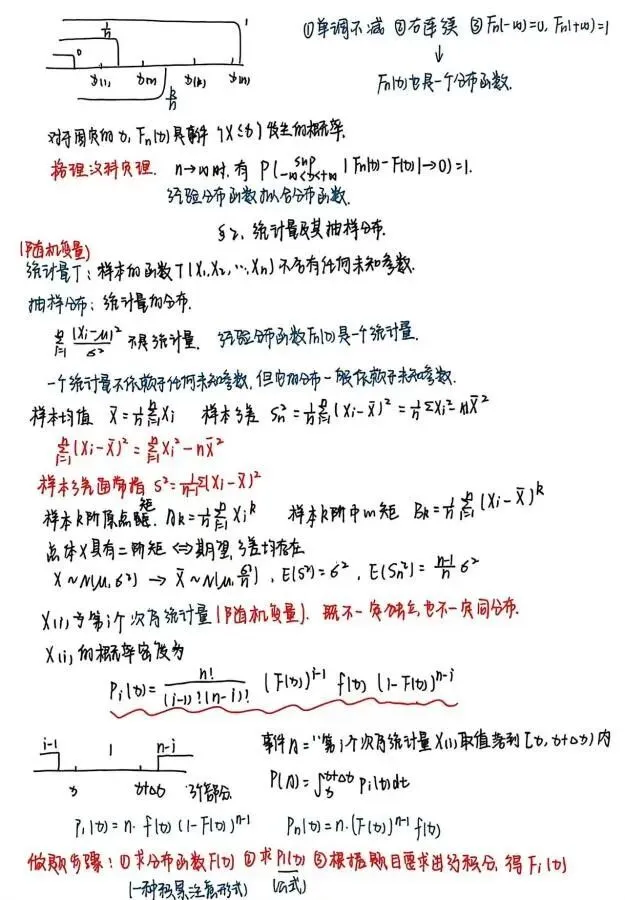 ①单调不减 ②右连续 ③Fn(-∞)=0, Fn(+∞)=1
1/n 1
0
x(1) x(2) x(k) x(n)
k/n
Fn(x)也是一个分布函数.
对于固定的x, Fn(x)是事件{X≤x}发生的概率.
格里汶科定理. n→∞时, 有 P(sup -∞<x<+∞ |Fn(x)-F(x)|→0)=1.
经验分布函数拟合分布函数.
§2. 统计量及其抽样分布.
(随机变量)
统计量T: 样本的函数T(X1,X2,…,Xn)不含有任何未知参数.
抽样分布: 统计量的分布.
n∑i=1 (Xi-μ)²/σ² 不是统计量. 经验分布函数Fn(x)是一个统计量.
一个统计量不依赖于任何未知参数, 但它的分布一般依赖于未知参数.
样本均值 X̄=1/n n∑i=1 Xi 样本方差 Sn²=1/n n∑i=1 (Xi-X̄)²=1/n ΣXi²-nX̄²
n∑i=1 (Xi-X̄)²=n∑i=1 Xi²-nX̄²
样本方差通常指 S²=1/(n-1) Σ(Xi-X̄)²
样本k阶原点矩. Ak=1/n n∑i=1 Xi^k 样本k阶中心矩 Bk=1/n n∑i=1 (Xi-X̄)^k
总体X具有二阶矩 ⇔ 期望, 方差均存在
X~N(μ,σ²) → X̄~N(μ,σ²/n), E(S²)=σ², E(Sn²)=(n-1)/n σ²
X(i)为第i个次序统计量(随机变量). 既不一定独立, 也不一定同分布.
X(i)的概率密度为
Pi(x)= n!/((i-1)!(n-i)!) (F(x))^(i-1) f(x) (1-F(x))^(n-i)
i-1 1 n-i
x x+Δx 3个部分
事件A="第i个次序统计量X(i)取值落到[x, x+Δx)内
P(A)=∫x^(x+Δx) Pi(t)dt
P1(x)=n·f(x)(1-F(x))^(n-1) Pn(x)=n·(F(x))^(n-1) f(x)
做题步骤: ①求分布函数F(x) ②求Pi(x) ③根据题目要求进行积分, 得Fi(x)
(一种积累注意形式) (公式)